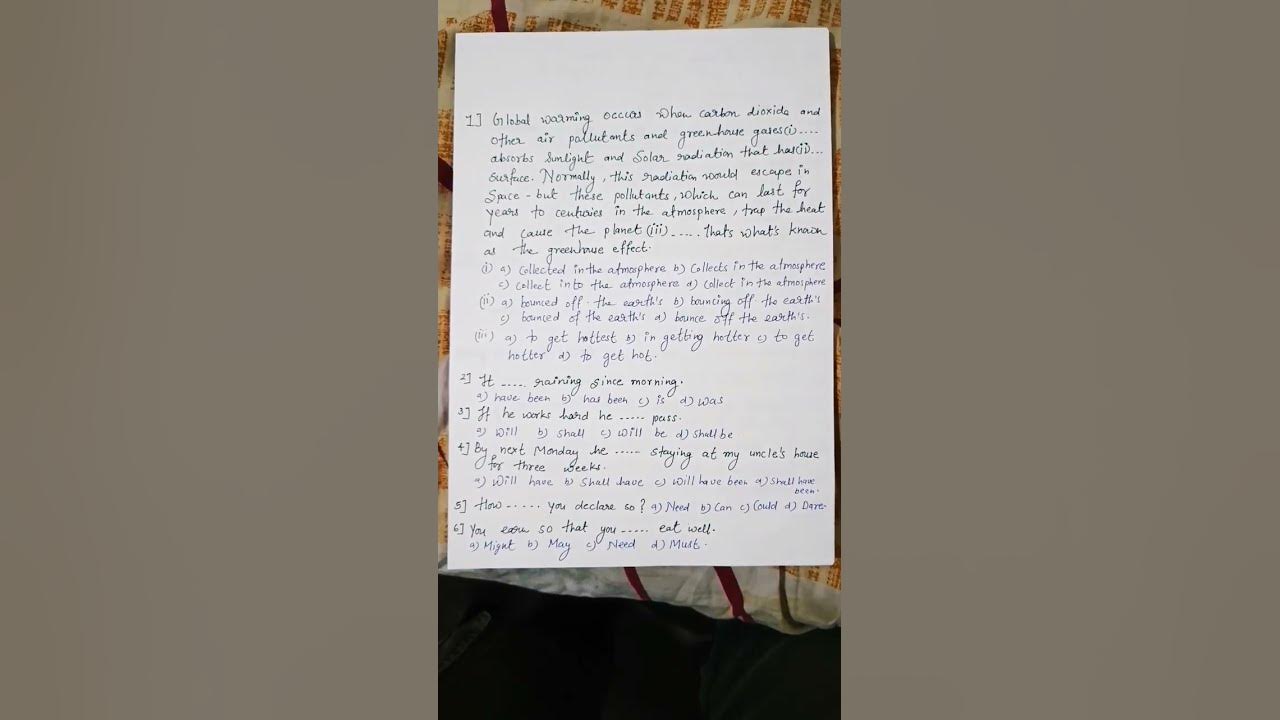 1] Global warming occurs when carbon dioxide and
other air pollutants and greenhouse gases(i)....
absorbs sunlight and Solar radiation that has(ii)...
surface. Normally, this radiation would escape in
Space - but these pollutants, which can last for
years to centuries in the atmosphere, trap the heat
and cause the planet (iii)..... that's what's known
as the greenhouse effect.
(i) a) Collected in the atmosphere b) Collects in the atmosphere
c) Collect into the atmosphere d) Collect in the atmosphere
(ii) a) bounced off the earth's b) bouncing off the earth's
c) bounced of the earth's d) bounce off the earth's.
(iii) a) to get hottest b) in getting hotter c) to get
hotter d) to get hot.
2] It ..... raining since morning.
a) have been b) has been c) is d) was
3] If he works hard he ..... pass.
a) Will b) Shall c) Will be d) Shall be
4] By next Monday he ..... staying at my uncle's house
for three weeks.
a) Will have b) Shall have c) Will have been d) Shall have
been.
5] How ...... you declare so? a) Need b) Can c) Could d) Dare.
6] You earn so that you ..... eat well.
a) Might b) May c) Need d) Must.